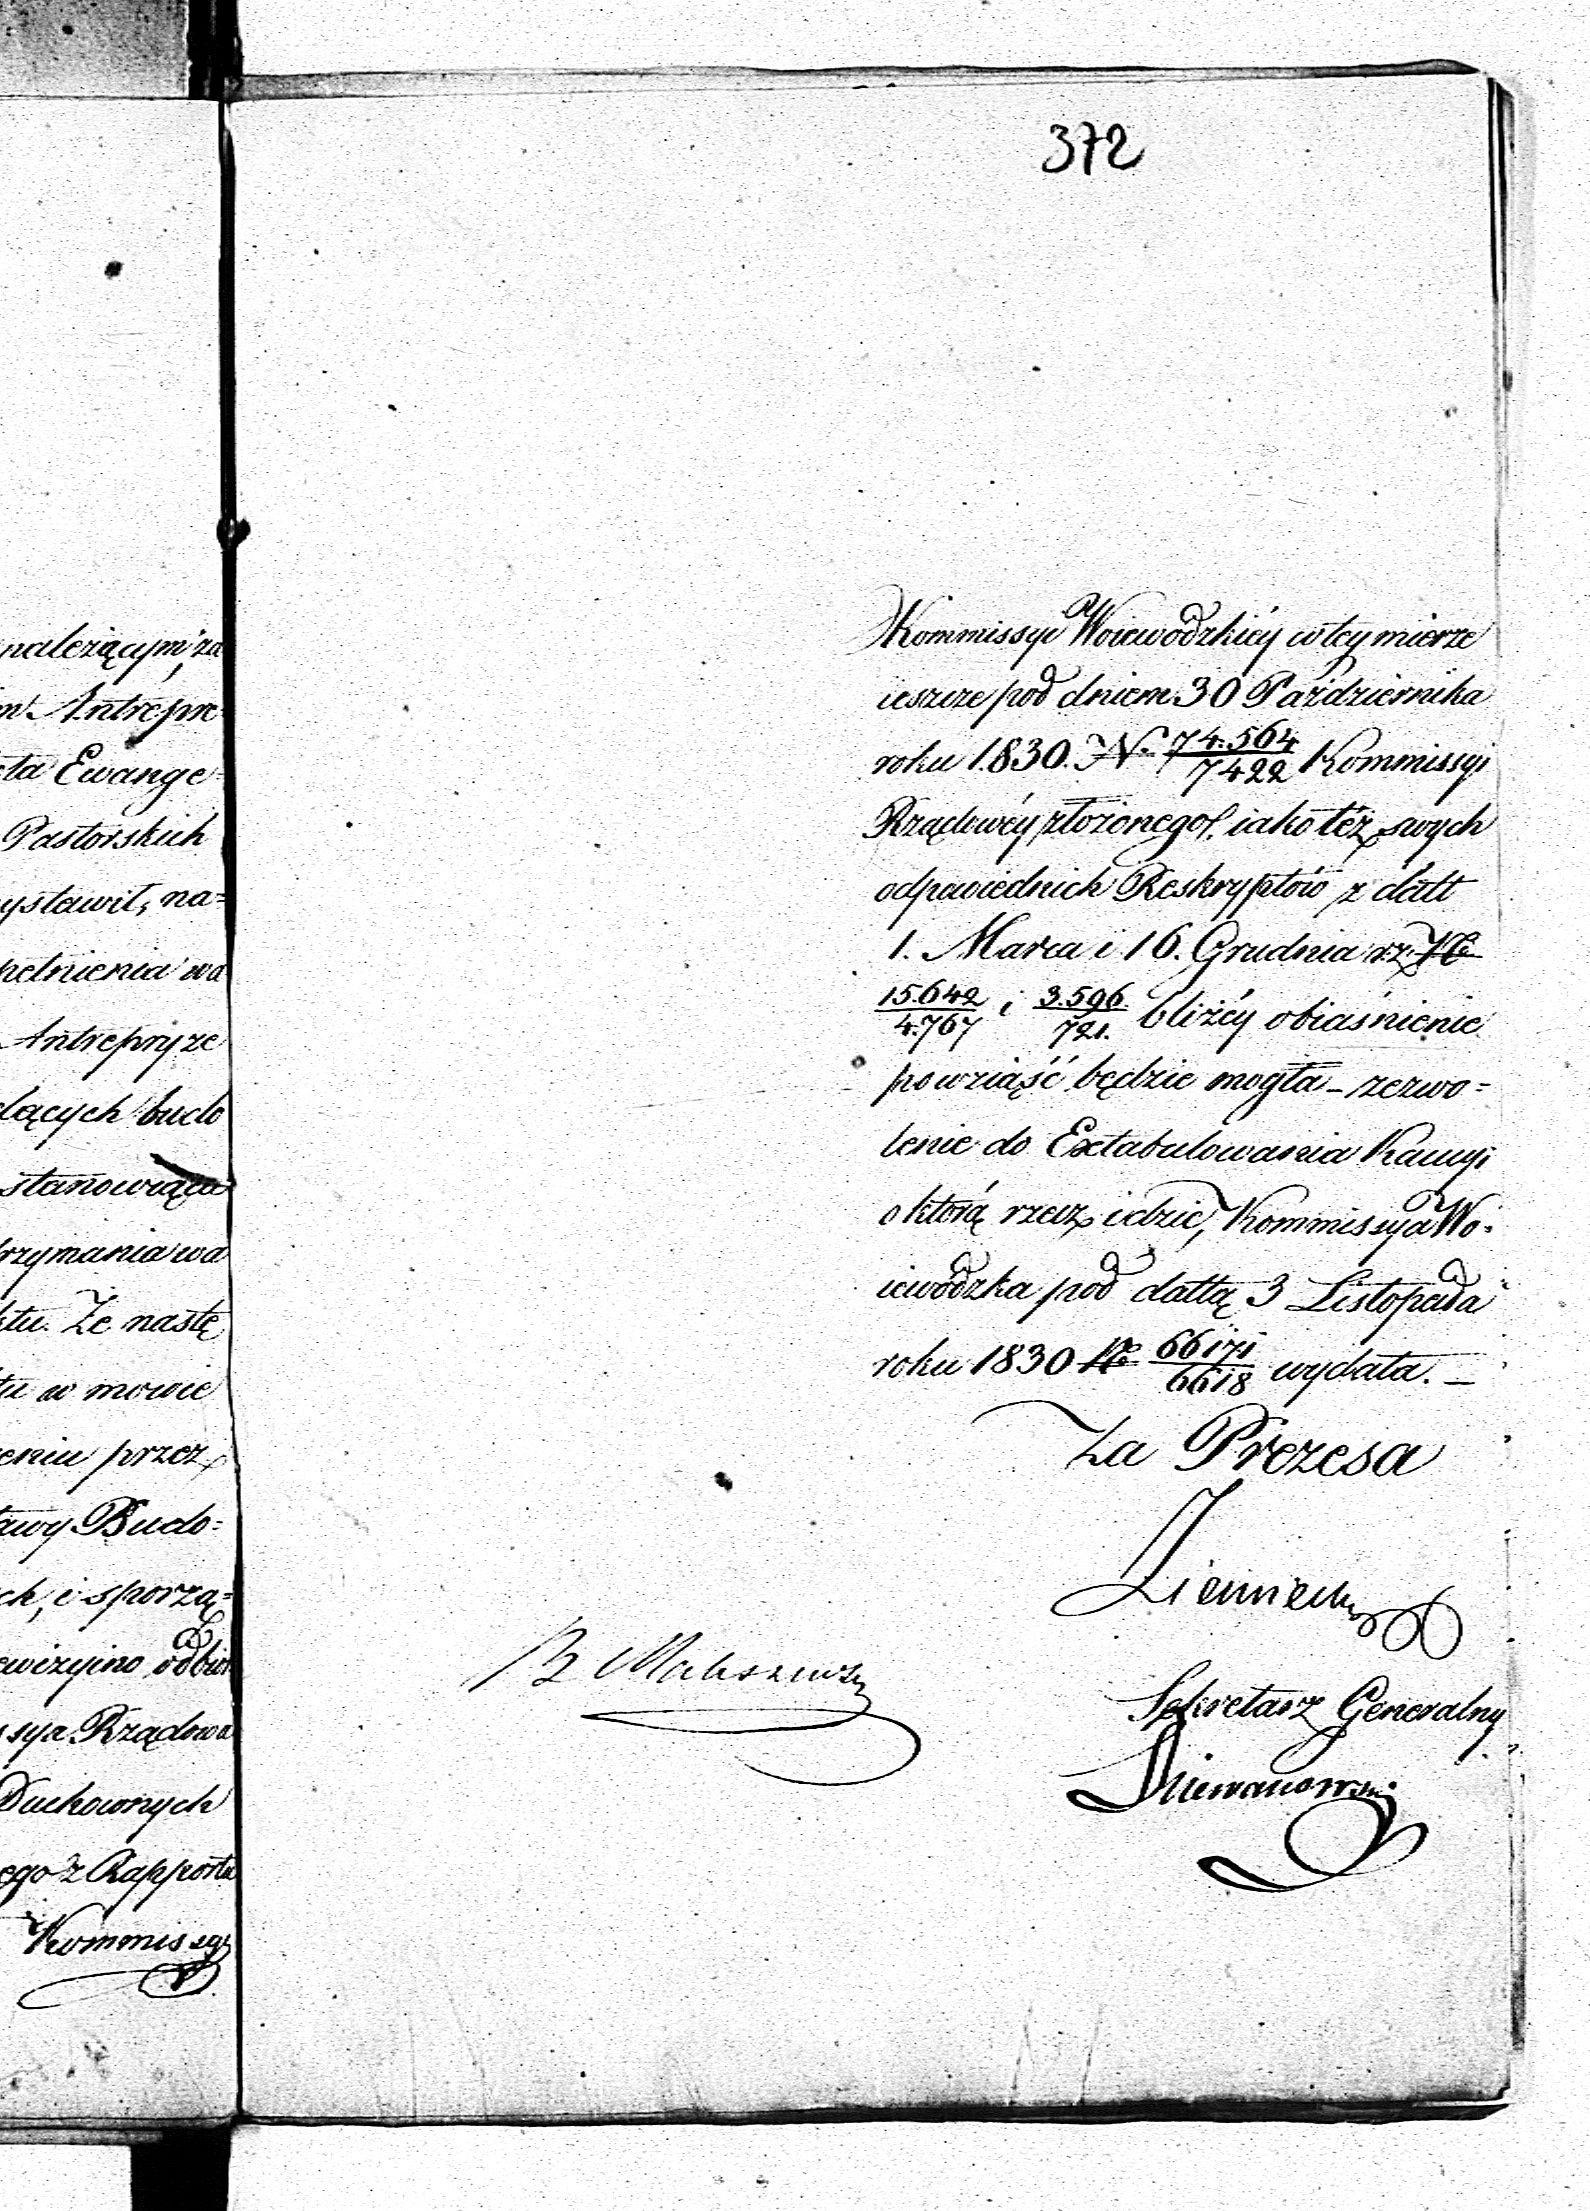 należącym, za
Antrepre
ta Ewange
Pastorskich
ystawił, na=
pełnienia wa
Antrepryze
dących budo
stanowiąca
trzymania wa
ktu. Że nastę
tu w mowie
eniu przez
tawy Budo=
ch, i sporzą=
ewizyino odbior
ssya Rządowa
Duchownych
ego z Rapportu
Kommissyi
372
Kommissyi Woiewodzkiéy w tey mierze
ieszcze pod dniem 30 Października
roku 1830. N. 74.564/7422 Kommissyi
Rządowéy złożonego, iako też z swych
odpowiednich Reskryptów z datt
1. Marca i 16. Grudnia r.z. No
15.642/4.767 i 3.596/721. bliżéy obiaśnienie
powziąść będzie mogła – zezwo=
lenie do Extabulowania Kaucyi
o którą rzecz idzie, Kommissya Wo=
iewódzka pod dattą 3 Listopada
roku 1830 No 66171/6618 wydała. –
Za Prezesa
Ziemiecki
B Maliszewski
Sekretarz Generalny